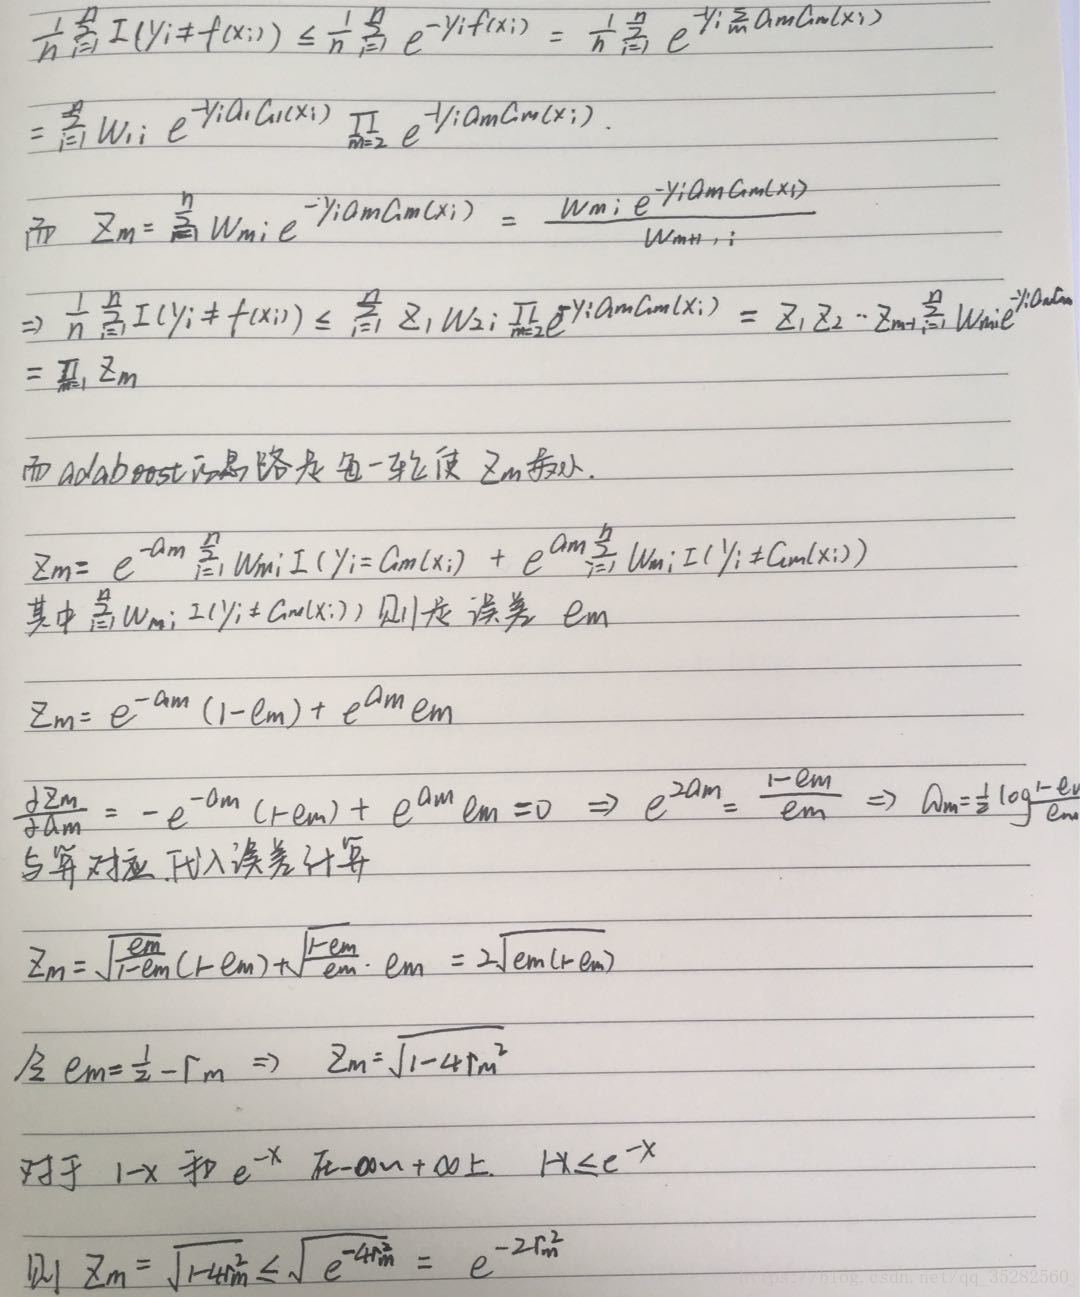 1/n Σ_{i=1}^{n} I(yi ≠ f(xi)) ≤ 1/n Σ_{i=1}^{n} e^{-yi f(xi)} = 1/n Σ_{i=1}^{n} e^{-yi Σ_m am Gm(xi)}
= Σ_{i=1}^{n} W1i e^{-yi a1 G1(xi)} Π_{m=2} e^{-yi am Gm(xi)}.
而 Zm = Σ_{i=1}^{n} Wmi e^{-yi am Gm(xi)} = Wmi e^{-yi am Gm(xi)} / Wm+1,i
⇒ 1/n Σ_{i=1}^{n} I(yi ≠ f(xi)) ≤ Σ_{i=1}^{n} Z1 W2i Π_{m=2} e^{-yi am Gm(xi)} = Z1 Z2 ·· Zm-1 Σ_{i=1}^{n} Wmi e^{-yi am Gm
= Π_{m=1} Zm
而 adaboost 的思路是每一轮使 Zm 最小.
Zm = e^{-am} Σ_{i=1}^{n} Wmi I(yi = Gm(xi) + e^{am} Σ_{i=1}^{n} Wmi I(yi ≠ Gm(xi))
其中 Σ_{i=1}^{n} Wmi I(yi ≠ Gm(xi)) 则是误差 em
Zm = e^{-am} (1-em) + e^{am} em
∂Zm/∂am = -e^{-am} (1-em) + e^{am} em = 0 ⇒ e^{2am} = (1-em)/em ⇒ am = 1/2 log (1-em)/em
与算对应.代入误差计算
Zm = √(em/(1-em)) (1-em) + √((1-em)/em) · em = 2√(em(1-em))
令 em = 1/2 - rm ⇒ Zm = √(1-4rm²)
对于 1-x 和 e^{-x} 在 -∞ ~ +∞上. 1-x ≤ e^{-x}
则 Zm = √(1-4rm²) ≤ √(e^{-4rm²}) = e^{-2rm²}
https://blog.csdn.net/qq_35282560